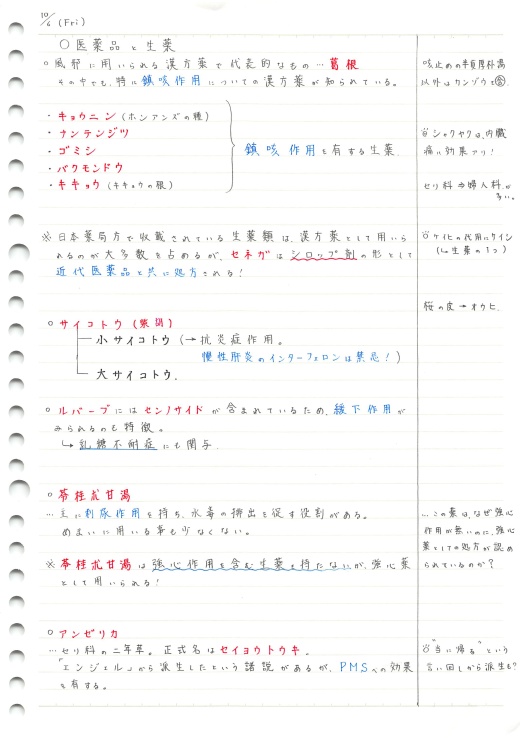 10/6 (Fri)
○ 医薬品と生薬
○ 風邪に用いられる漢方薬で代表的なもの … 葛根
その中でも、特に鎮咳作用についての漢方薬が知られている。
・キョウニン (ホンアンズの種)
・ナンテンジツ
・ゴミシ
・バクモンドウ
・キキョウ (キキョウの根)
鎮咳作用を有する生薬.
※ 日本薬局方で収載されている生薬類は、漢方薬として用いら
れるのが大多数を占めるが、セネガはシロップ剤の形として
近代医薬品と共に処方される!
○ サイコトウ (柴胡)
小サイコトウ (→抗炎症作用。
慢性肝炎のインターフェロンは禁忌!)
大サイコトウ.
○ ルバーブにはセンノサイドが含まれているため、緩下作用が
みられるのも特徴。
↳ 乳糖不耐症にも関与.
○ 苓桂朮甘湯
… 主に利尿作用を持ち、水毒の排出を促す役割がある。
めまいに用いる事も少なくない。
※ 苓桂朮甘湯は強心作用を含む生薬を持たないが、強心薬
として用いられる!
○ アンゼリカ
… セリ科の二年草。正式名はセイヨウトウキ.
「エンジェル」から派生したという諸説があるが、PMSへの効果
を有する。
咳止めの半夏厚朴湯
以外はカンゾウを
シャクヤクは、内臓
痛に効果アリ!
セリ科 ⇒ 婦人科が
多い。
ケイヒの代用にケイシ
(↳生薬の1つ)
桜の皮→オウヒ.
… この薬は、なぜ強心
作用が無いのに、強心
薬としての処方が認め
られているのか?
"当に帰る"という
言い回しから派生も?